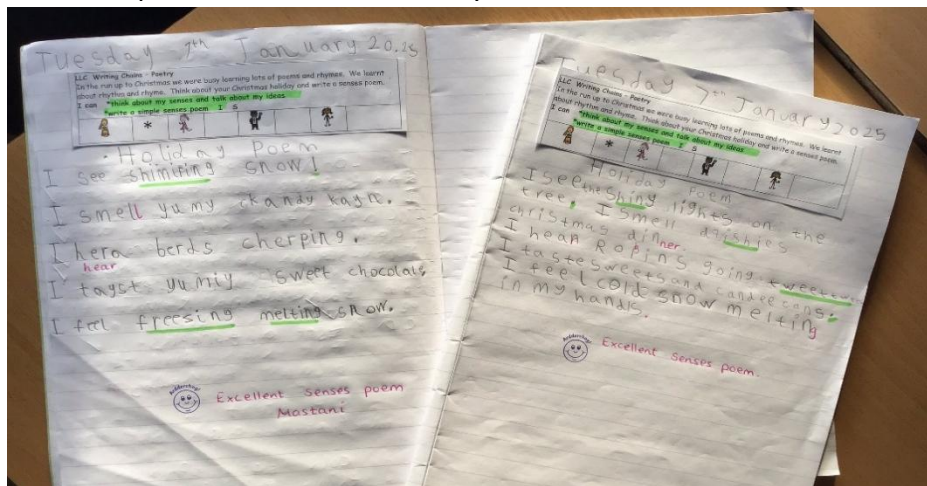 Tuesday 7th January 2025
LLC Writing Chains - Poetry
In the run up to Christmas we were busy learning lots of poems and rhymes. We learnt
about rhythm and rhyme. Think about your Christmas holiday and write a senses poem.
I can *think about my senses and talk about my ideas
*write a simple senses poem I S
*
Holiday Poem
I see snow!
I smell yumy kandy kayn.
I hera berds cherping.
hear
I tayst yumiy sweet chocolate
I feel freesing melting snow.
Excellent senses poem
Mastani
Tuesday 7th January 2025
LLC Writing Chains - Poetry
In the run up to Christmas we were busy learning lots of poems and rhymes. We learnt
about rhythm and rhyme. Think about your Christmas holiday and write a senses poem.
I can *think about my senses and talk about my ideas
*write a simple senses poem I S
*
Holiday Poem
I see the shing lights on the
tree. I smell
christmas dinner.
I hean Ropins going
I taste sweets and candee cans.
I feel cold snow melting
in my hands.
Excellent senses poem.